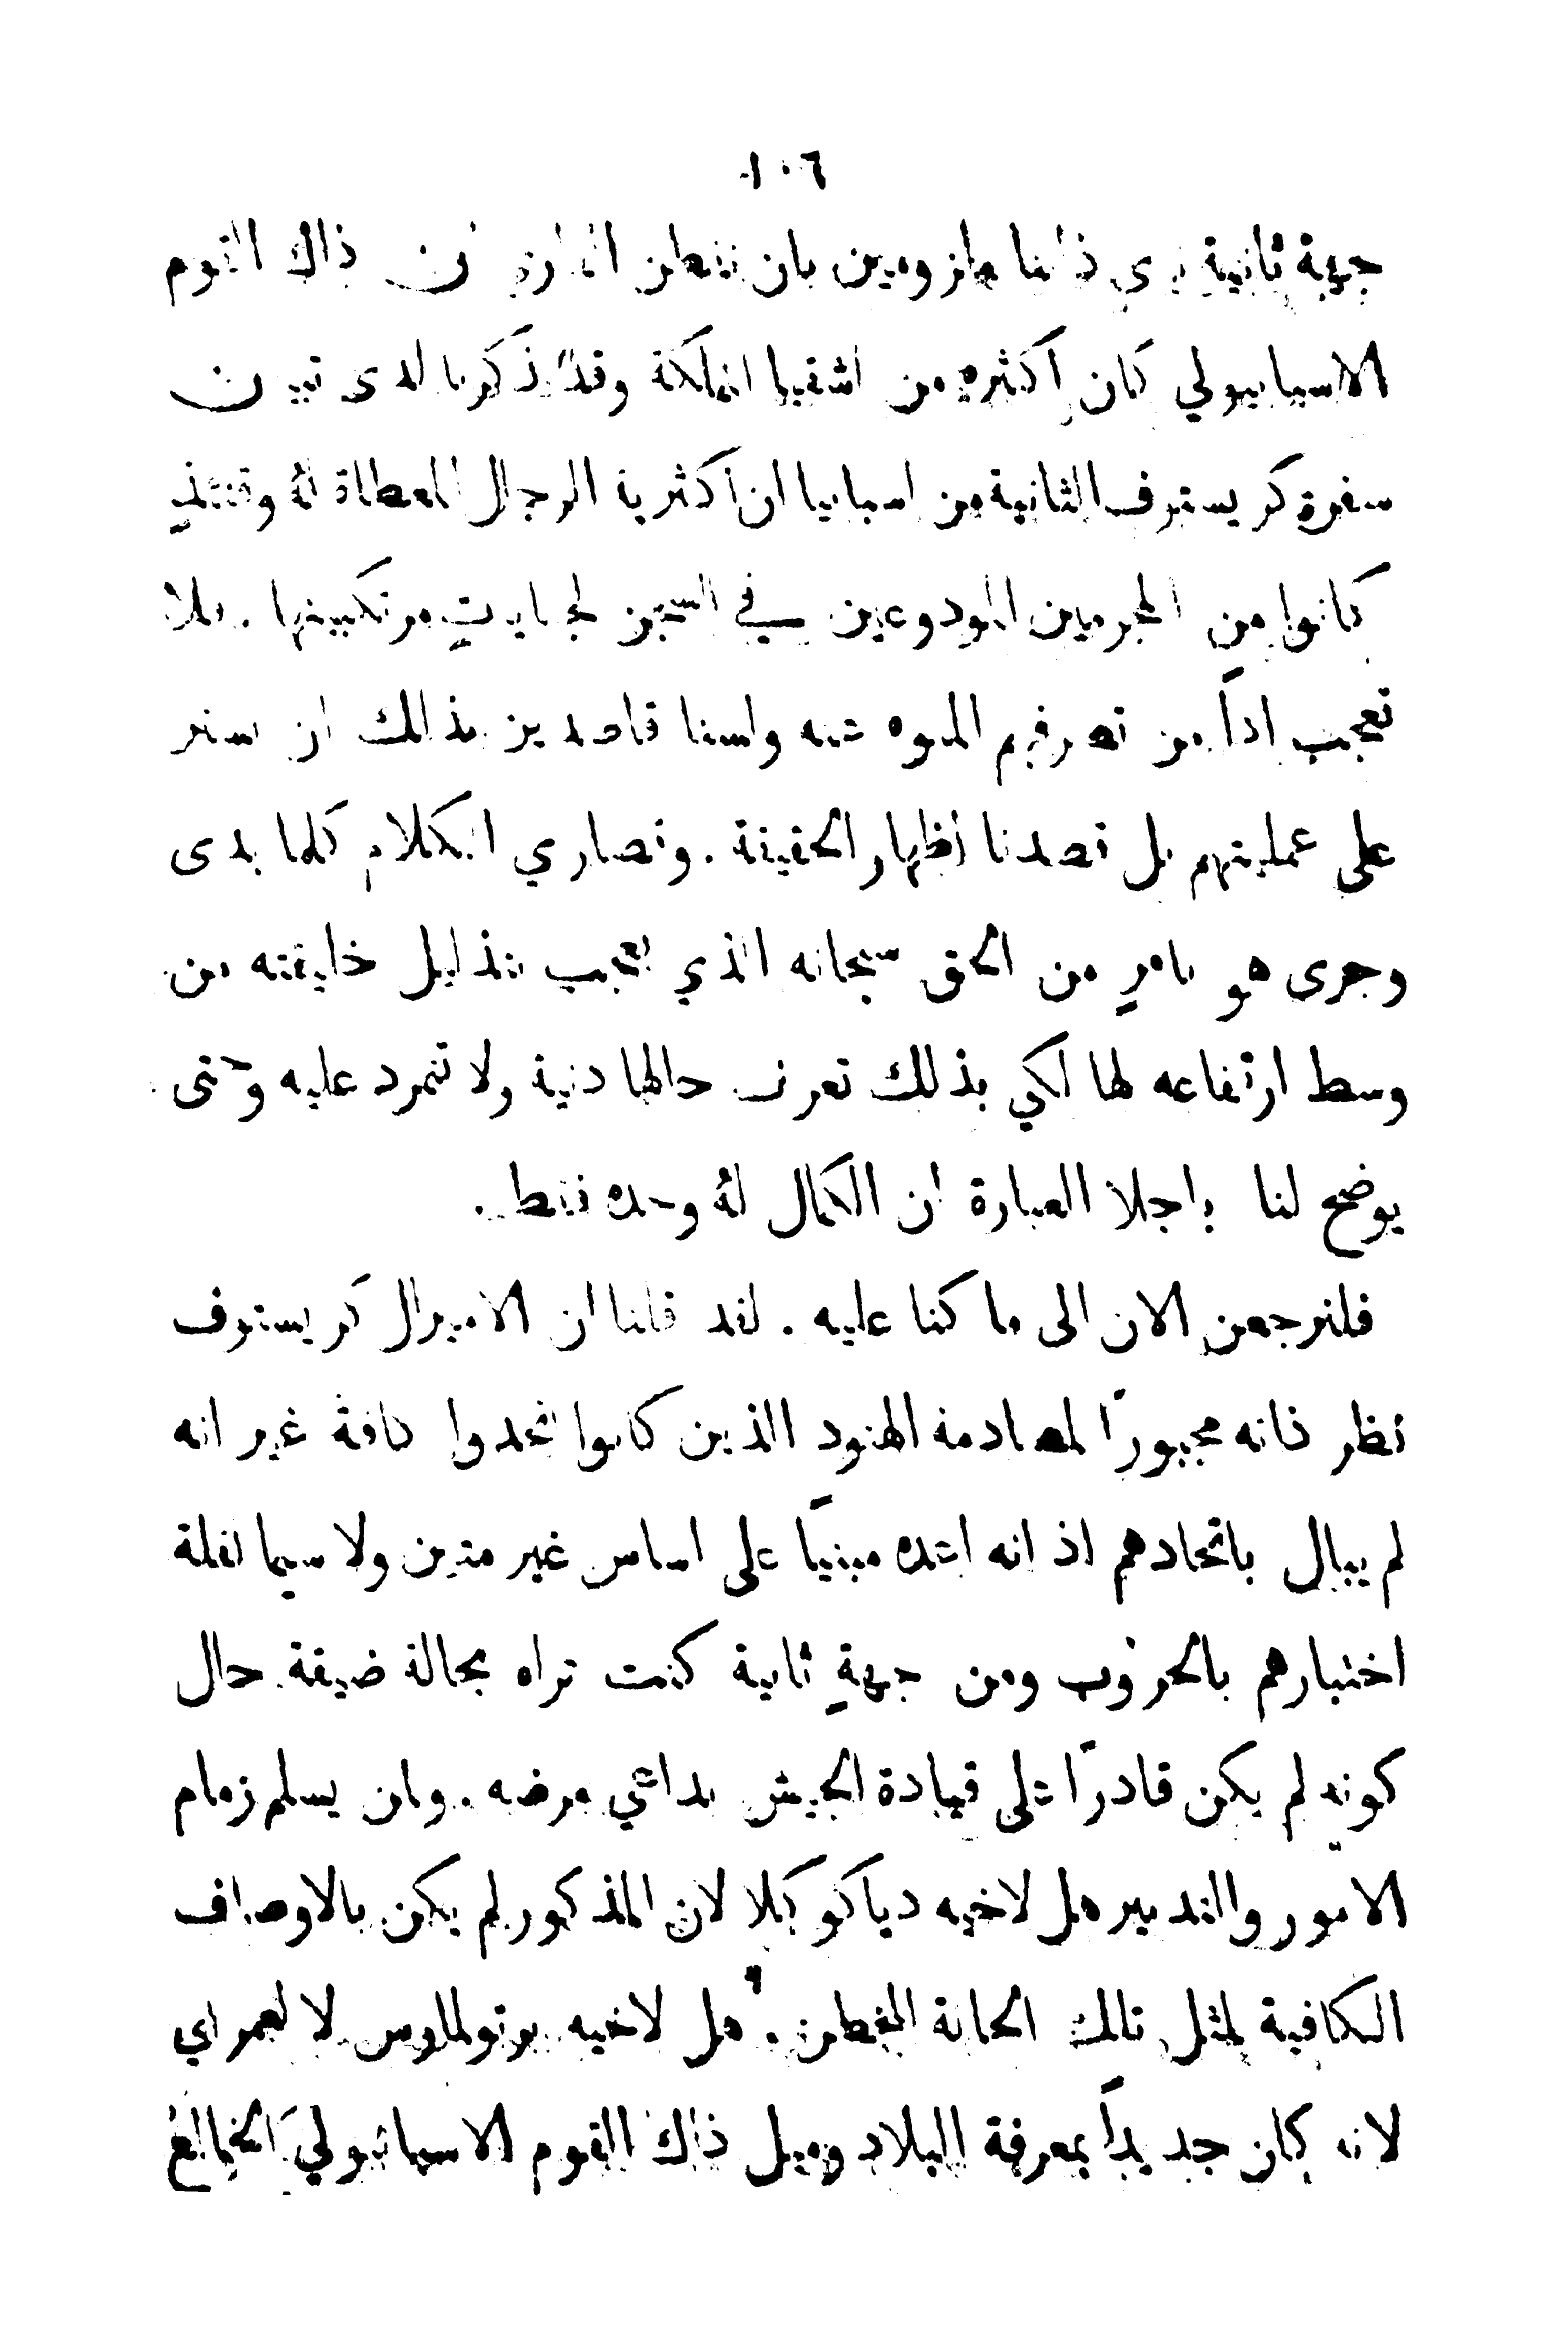 ١٠٦
جهة ثانية نرى ذاتنا ملزومين بان نفطن ان ذاك القوم
الاسبانيولي كان اكثره من اشقيا المملكة وقد ذكرنا لدى تبين
سفرة كريستوف الثانية من اسبانيا ان اكثرية الرجال المعطاة له وقتئذٍ
كانوا من المجرمين المودوعين في السجن لجنايات مرتكبينها . فلا
تعجب اذاً من تصرفهم المنوه عنه ولسنا قاصدين بذلك ان نستر
على عمليتهم بل قصدنا اظهار الحقيقة . وقصاري الكلام كلما بدى
وجرى هو بامرٍ من الحق سبحانه الذي يحب تذليل خليقته من
وسط ارتفاعه لها لكي بذلك تعرف حالها دنية ولا تتمرد عليه وحتى
يوضح لنا باجلا العبارة ان الكمال لهُ وحده فقط .
فلنرجعن الان الى ما كنا عليه . لقد قلنا ان الاميرال كريستوف
نظر ذاته مجبورًا لمصادمة الهنود الذين كانوا اتحدوا كافة غير انه
لم يبال باتحادهم اذ انه اعتده مبنيًا على اساس غير متين ولا سيما لقلة
اختبارهم بالحروب ومن جهةٍ ثانية كنت تراه بحالة ضيقة حال
كونهِ لم يكن قادرًا على قيادة الجيش بداعي مرضه . ولمن يسلم زمام
الامور والتدبير هل لاخيه دياكو كلا لان المذكور لم يكن بالاوصاف
الكافية لمثل تلك الحالة الخطرة . هل لاخيه برتولماوس لا لعمري
لانه كان جديداً بمعرفة البلاد وميل ذاك القوم الاسبانيولي المخالع